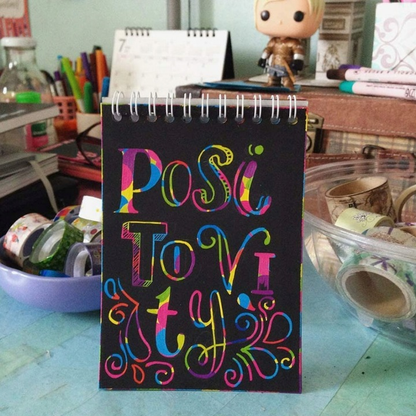 PoSi
ToVI
ty
7